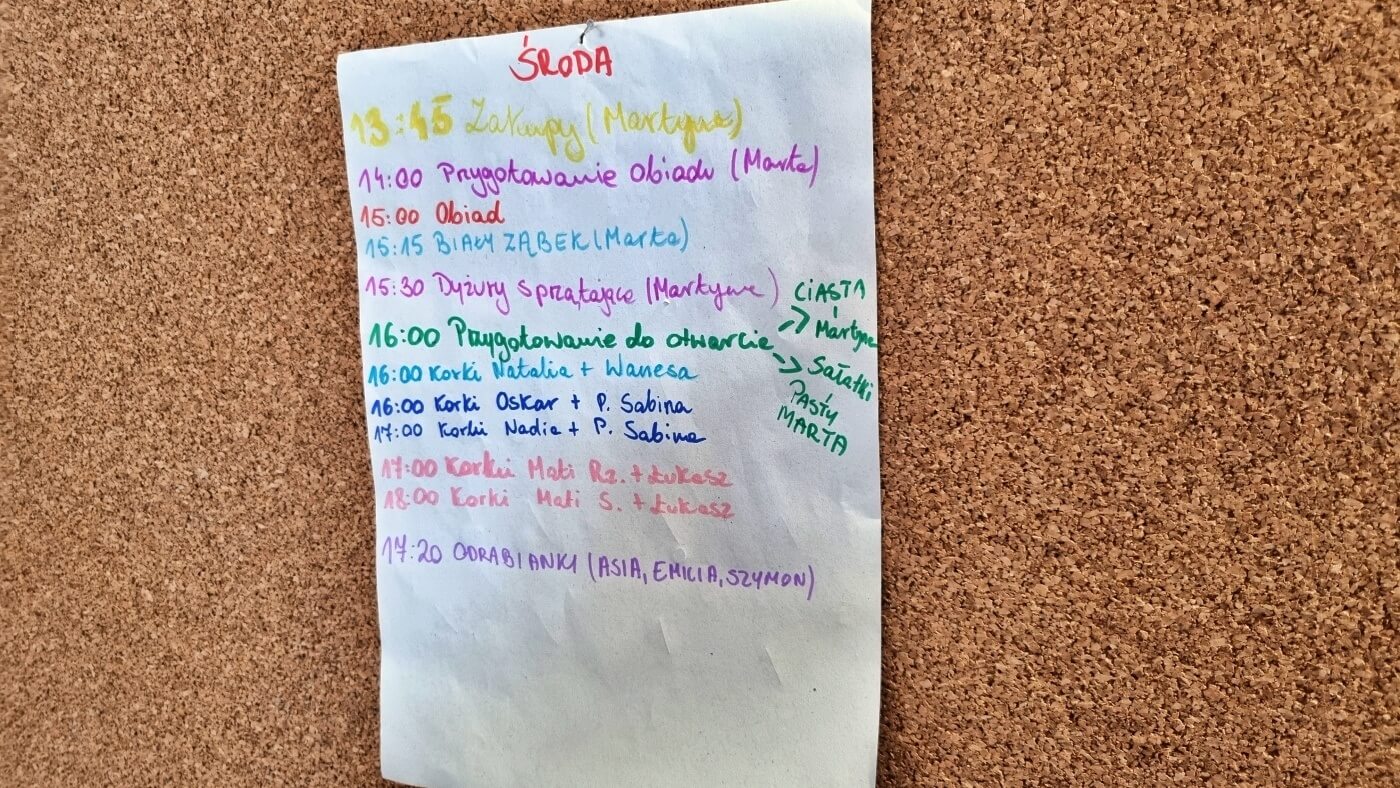 ŚRODA
13:45 Zakupy (Martyna)
14:00 Przygotowanie Obiadu (Marta)
15:00 Obiad
15:15 BIAŁY ZĄBEK (Marta)
15:30 Dyżury sprzątające (Martyna)
16:00 Przygotowanie do otwarcia
CIASTA
Martyna
Sałatki
PASTY
MARTA
16:00 Korki Natalia + Wanesa
16:00 Korki Oskar + P. Sabina
17:00 Korki Nadia + P. Sabina
17:00 Korki Mati Rz. + Łukasz
18:00 Korki Mati S. + Łukasz
17:20 ODRABIANKI (ASIA, EMILIA, SZYMON)